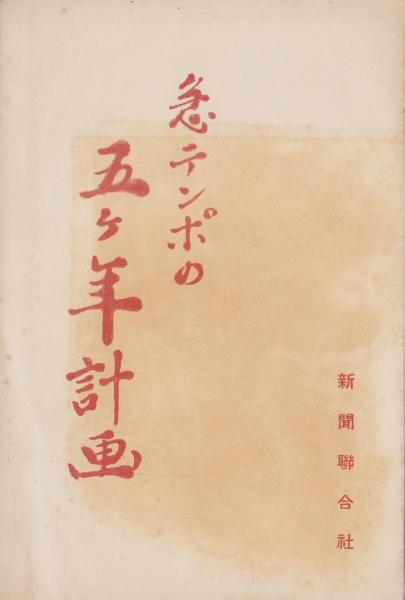 急テンポの
五ケ年計画
新聞聯合社